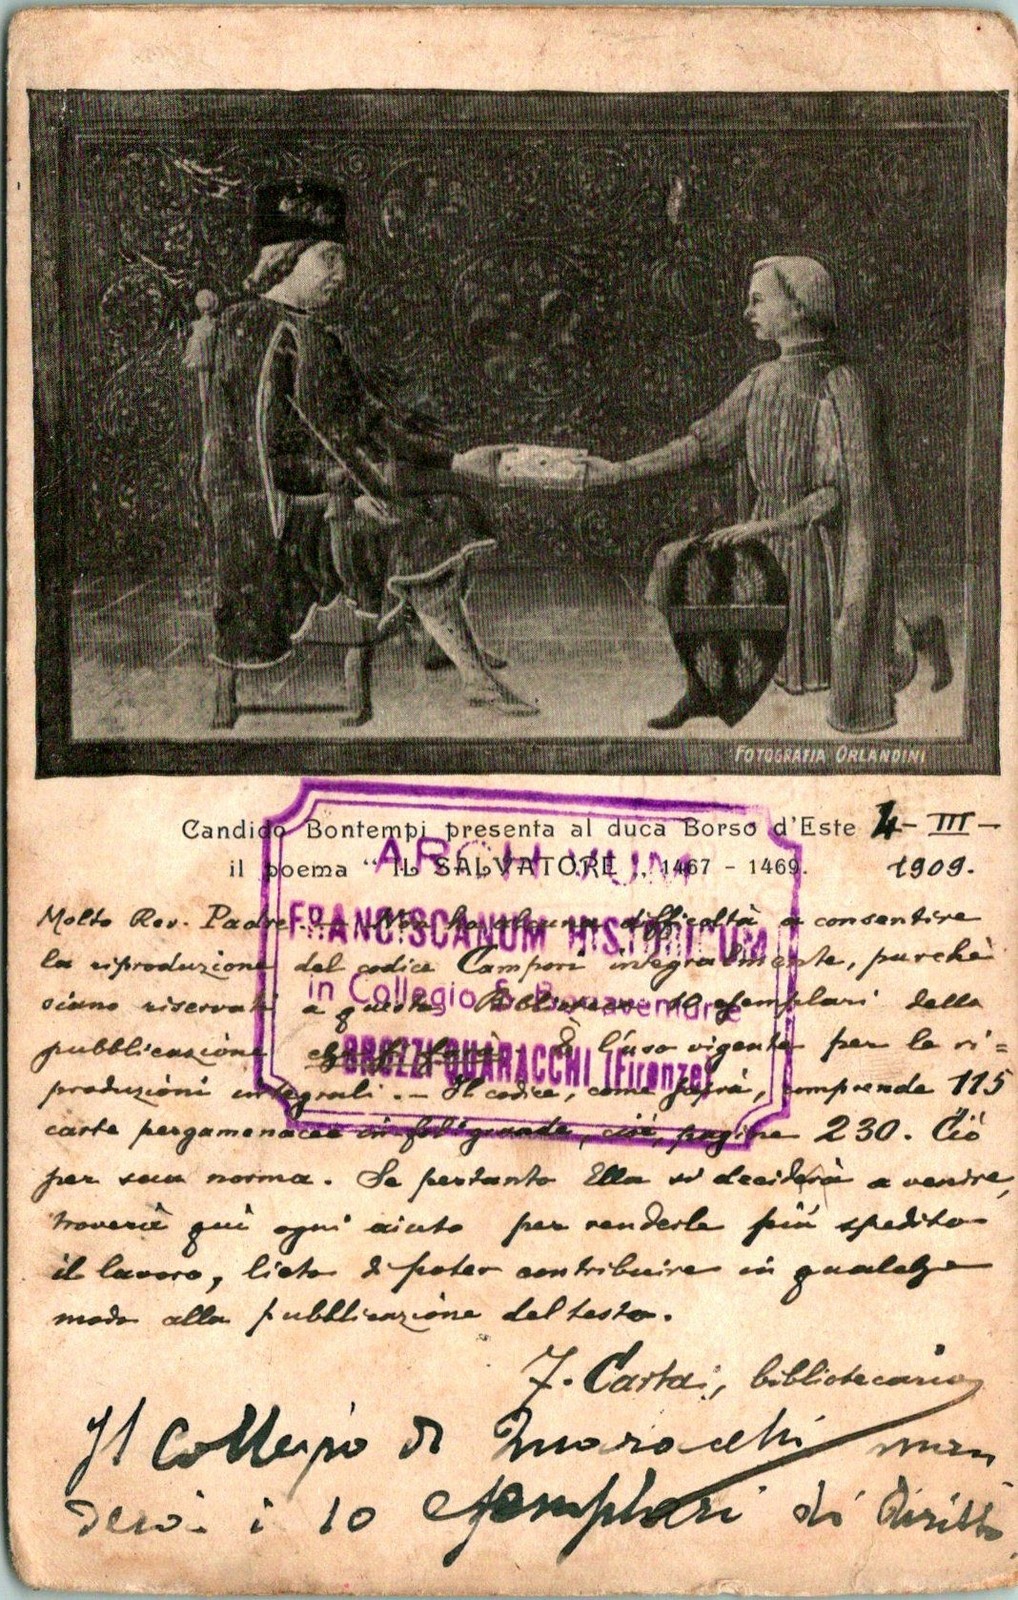 FOTOGRAFIA ORLANDINI
Candido Bontempi presenta al duca Borso d'Este
il poema “ IL SALVATORE „ 1467 - 1469.
4 - III -
1909.
ARCHIVUM
FRANCISCANUM HISTORICUM
in Collegio S. Bonaventurae
BROZZI-QUARACCHI (Firenze)
Molto Rev. Padre. - Non ho alcuna difficoltà a consentire
la riproduzione del codice Campori integralmente, purchè
siano riservati a questa Biblioteca 10 esemplari della
pubblicazione È l'uso vigente per le ri=
produzioni integrali. - Il codice, come saprà, comprende 115
carte pergamenacee in fol. grande, cioè, pagine 230. Ciò
per sua norma. Se pertanto Ella si deciderà a venire,
troverà qui ogni aiuto per renderle più spedito
il lavoro, lieto di poter contribuire in qualche
modo alla pubblicazione del testo.
F. Carta, bibliotecario
Il Collegio di Quaracchi man
derà i 10 esemplari di diritto